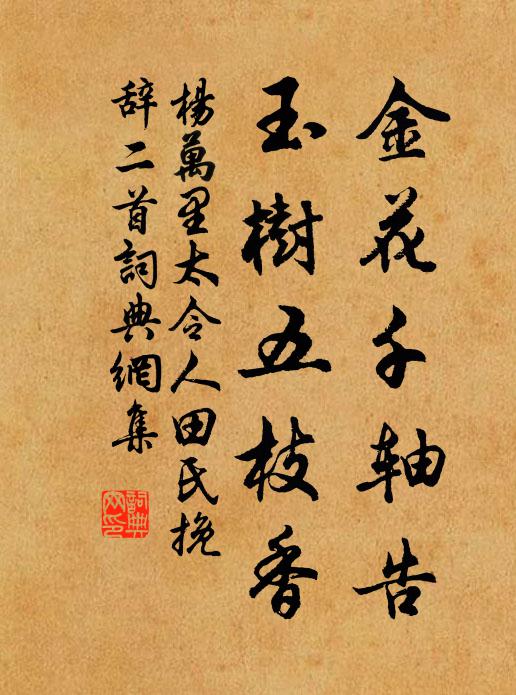 金花千轴告
玉樹五枝香
楊萬里太令人田氏挽
辞二首詞典網集
詞典網印